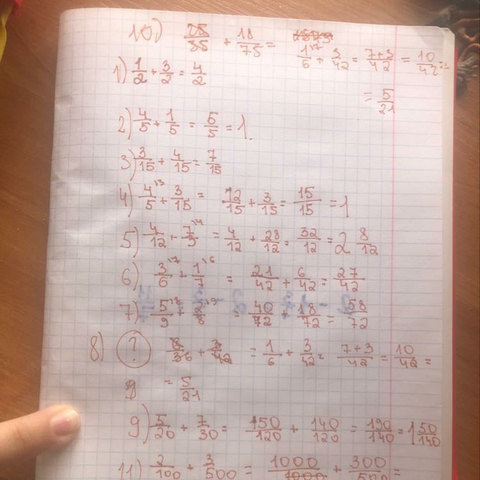 10) 25/35 + 18/75 =
1/6 + 3/42 = 7+3/42 = 10/42 =
= 5/21
1) 1/2 + 3/2 = 4/2
2) 4/5 + 1/5 = 5/5 = 1.
3) 3/15 + 4/15 = 7/15
4) 4/5 + 3/15 = 12/15 + 3/15 = 15/15 = 1
5) 4/12 + 7/3 = 4/12 + 28/12 = 32/12 = 2 8/12
6) 3/6 + 1/7 = 21/42 + 6/42 = 27/42
7) 5/9 + 2/8 = 40/72 + 18/72 = 58/72
8) ? + 3/42 = 1/6 + 3/42 = 7+3/42 = 10/42 =
= 5/21
9) 5/20 + 7/30 = 150/120 + 140/120 = 190/140 = 1 50/140
11) 2/100 + 3/500 = 1000 + 300 =